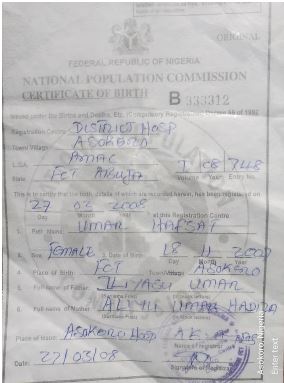 ORIGINAL
FEDERAL REPUBLIC OF NIGERIA
NATIONAL POPULATION COMMISSION
CERTIFICATE OF BIRTH B 333312
Issued under the Births and Deaths, Etc. (Compulsory Registration) Decree 69 of 1992
Registration Centre DISTRICT HOSP
Town/Village ASOKORO
L.G.A. AMAC
State FCT ABUJA Volume of Year Entry No.
This is to certify that the birth, details of which are recorded herein, has been registered on
27 02 2008
Day Month Year at this Registration Centre
1. Full Name UMAR HAFSAT
2. Sex FEMALE 3. Date of Birth 18 11
Day Month Year
4. Place of Birth FCT Town/Village ASOKORO
5. Full Name of Father ILIYASU UMAR
6. Full Name of Mother UMAR HADIZA
Place of Issue: ASOKORO HOSP
Name of registrar
Date 27/03/08
Signature of Registrar
Asokoro, Nigeria
Enter text